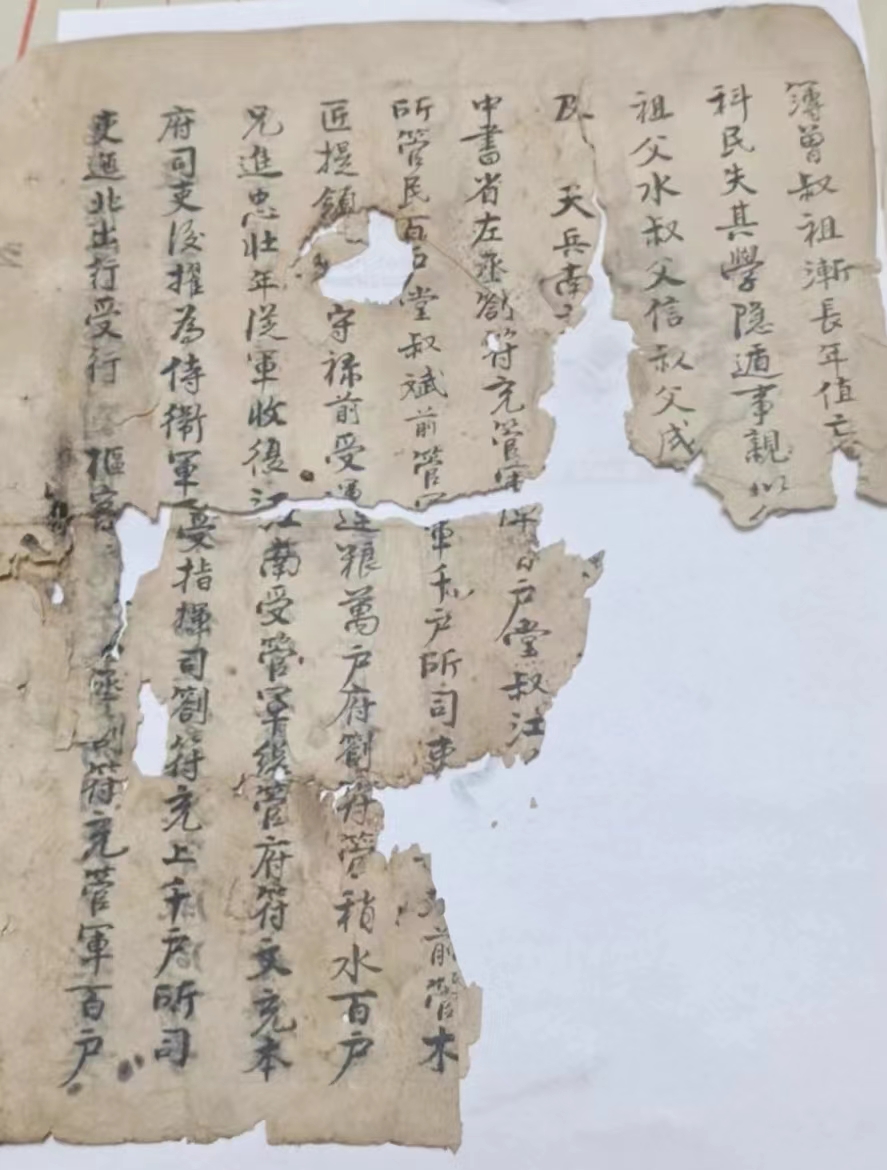 簿曾叔祖漸長年值亡
科民失其學隱遁事親
祖父水叔父信叔父成
及 天兵南
中書省左丞劄符充管軍 户堂叔江
所管民百户堂叔斌前管 軍千户所司吏
前管木
匠提領 守禄前受 粮萬户府劄符管稍水百户
兄進忠壯年從軍收復江南受管軍總管府符文充本
府司吏後擢為侍衛軍受指揮司劄符充上千户所司
吏迤北出行受行 樞密 丞劄符充管軍百户